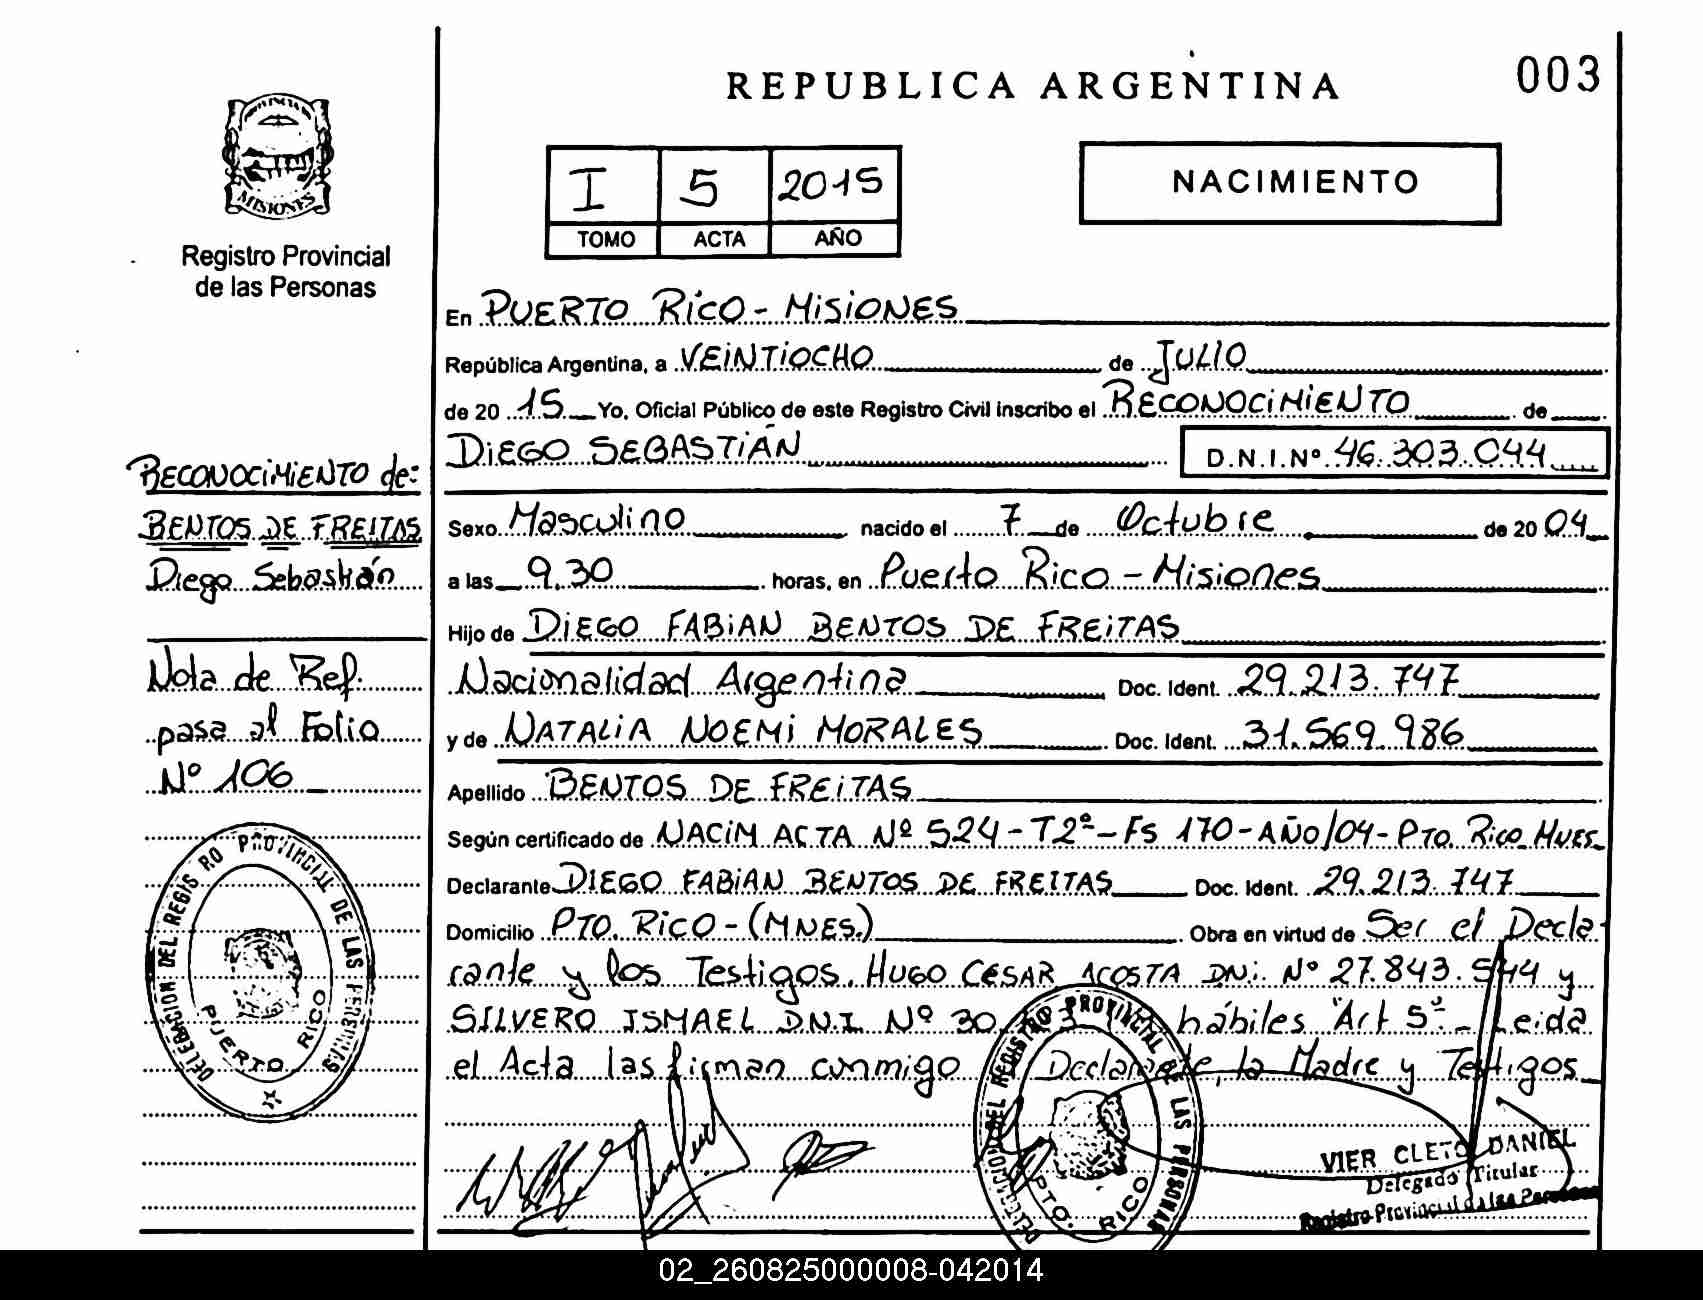 REPUBLICA ARGENTINA
003
PROVINCIA
MISIONES
Registro Provincial
de las Personas
I 5 2015
TOMO ACTA AÑO
NACIMIENTO
En PUERTO RICO - MISIONES
República Argentina, a VEINTIOCHO de JULIO
de 20 15 Yo, Oficial Público de este Registro Civil inscribo el RECONOCIMIENTO de
DIEGO SEBASTIÁN D.N.I.Nº 46.303.044
Sexo Masculino nacido el 7 de Octubre de 20 04
a las 9.30 horas, en Puerto Rico - Misiones
Hijo de DIEGO FABIAN BENTOS DE FREITAS
Nacionalidad Argentina Doc. Ident. 29.213.747
y de NATALIA NOEMI MORALES Doc. Ident. 31.569.986
Apellido BENTOS DE FREITAS
Según certificado de NACIM ACTA Nº 524 - T2º - FS 170 - AÑO/04 - PTO. Rico
Declarante DIEGO FABIAN BENTOS DE FREITAS Doc. Ident. 29.213.747
Domicilio PTO. RICO - (MNES.) Obra en virtud de Ser el Decla-
rante y los Testigos. HUGO CESAR ACOSTA DNI. Nº 27.843.544 y
SILVERO ISMAEL D.N.I. Nº 30. hábiles Art 5º - Leida
el Acta las firman conmigo Declarante, la Madre y Testigos
RECONOCIMIENTO de:
BENTOS DE FREITAS
Diego Sebastián
Nota de Ref.
pasa al Folio
Nº 106
DELEGACION DEL REGISTRO PROVINCIAL DE LAS PERSONAS
PUERTO RICO
DELEGACION DEL REGISTRO PROVINCIAL DE LAS PERSONAS
PTO. RICO
VIER CLETO DANIEL
Delegado Titular
Registro Provincial de las Personas
02_260825000008-042014